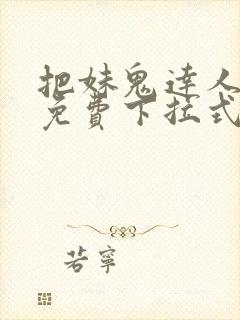 把妹鬼達人
免費下拉式
若寧